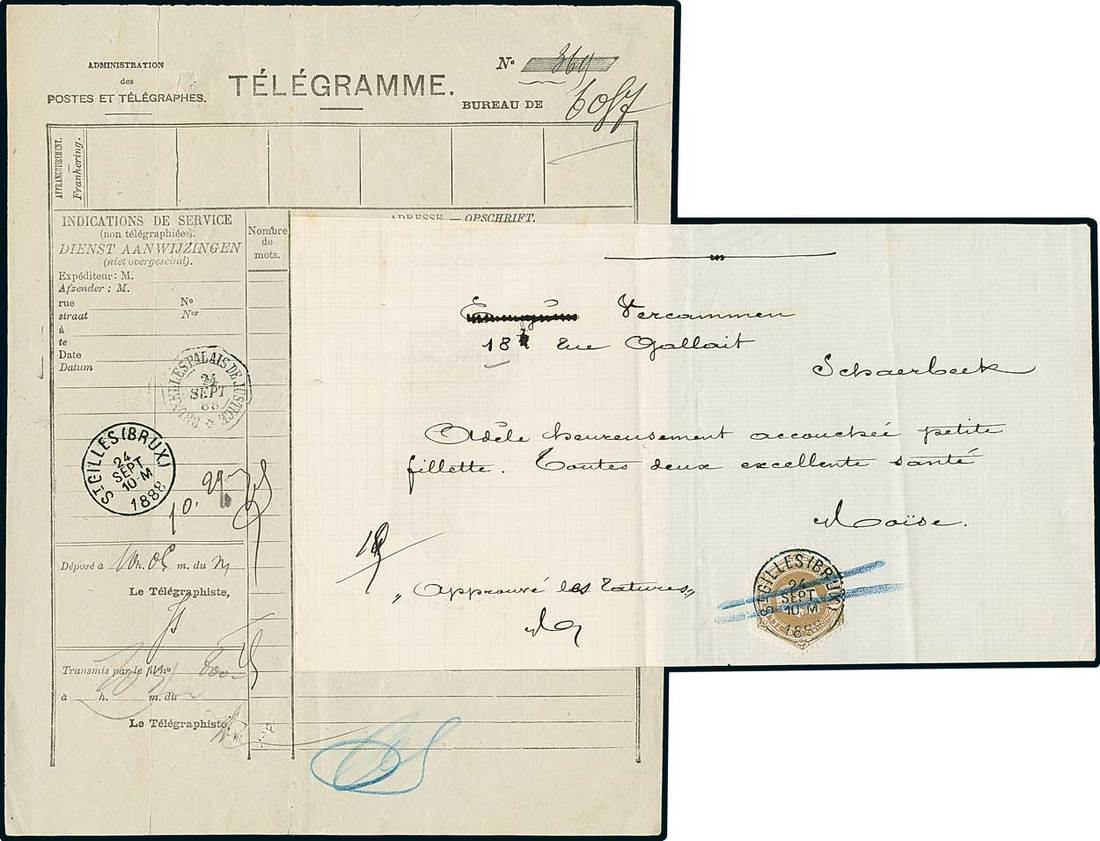 ADMINISTRATION
des
POSTES ET TÉLÉGRAPHES.
TÉLÉGRAMME.
N° 369
BUREAU DE
6057
AFFRANCHISSEMENT.
Frankering.
INDICATIONS DE SERVICE
(non télégraphiées).
DIENST AANWIJZINGEN
(niet overgeseind).
Expéditeur: M.
Afzender: M.
rue N°
straat Ner
à
te
Date
Datum
Nombre
de
mots.
ADRESSE — OPSCHRIFT.
BRUXELLES PALAIS DE JUSTICE
24
SEPT
88
ST GILLES (BRUX)
24
SEPT
10 M
1888
Déposé à 10 h. 05 m. du
Le Télégraphiste,
Transmis par le fil n°
à h. m. du
Le Télégraphiste,
Vercammen
18 Rue Gallait
Schaerbeek
Adèle heureusement accouchée petite
fillette. Toutes deux excellente santé
Moïse.
18
"Approuvé les ratures"
ST GILLES (BRUX)
24
SEPT
10 M
1888